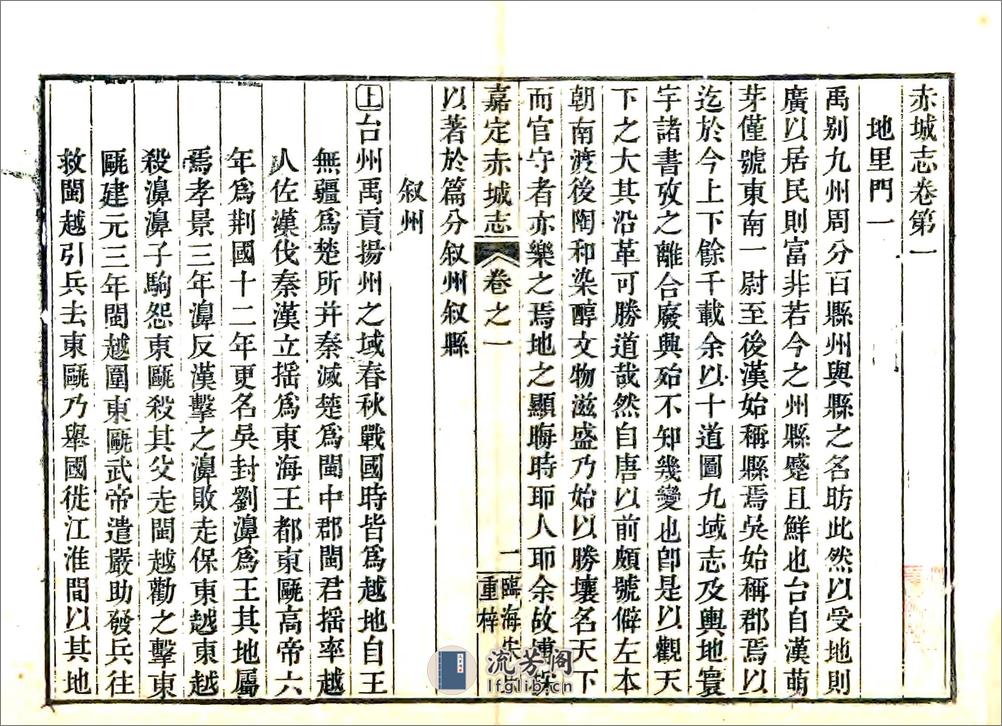 赤城志卷第一
地里門一
禹别九州周分百縣州與縣之名昉此然以受地則
廣以居民則富非若今之州縣蹙且鮮也台自漢萌
芽僅號東南一尉至後漢始稱縣焉吳始稱郡焉以
迄於今上下餘千載余以十道圖九域志及輿地寰
宇諸書攷之離合廢興殆不知幾變也卽是以觀天
下之大其沿革可勝道哉然自唐以前頗號僻左本
朝南渡後陶和染醇文物滋盛乃始以勝壤名天下
而官守者亦樂之焉地之顯晦時耶人耶余故摟
嘉定赤城志 卷之一 一 臨海
重梓
以著於篇分叙州叙縣
叙州
上台州禹貢揚州之域春秋戰國時皆爲越地自王
無疆爲楚所并秦滅楚爲閩中郡閩君摇率越
人佐漢伐秦漢立摇爲東海王都東甌高帝六
年爲荆國十二年更名吳封劉濞爲王其地屬
焉孝景三年濞反漢擊之濞敗走保東越東越
殺濞濞子駒怨東甌殺其父走閩越勸之擊東
甌建元三年閩越圍東甌武帝遣嚴助發兵往
救閩越引兵去東甌乃舉國徙江淮間以其地
流芳阁
lfglib.com